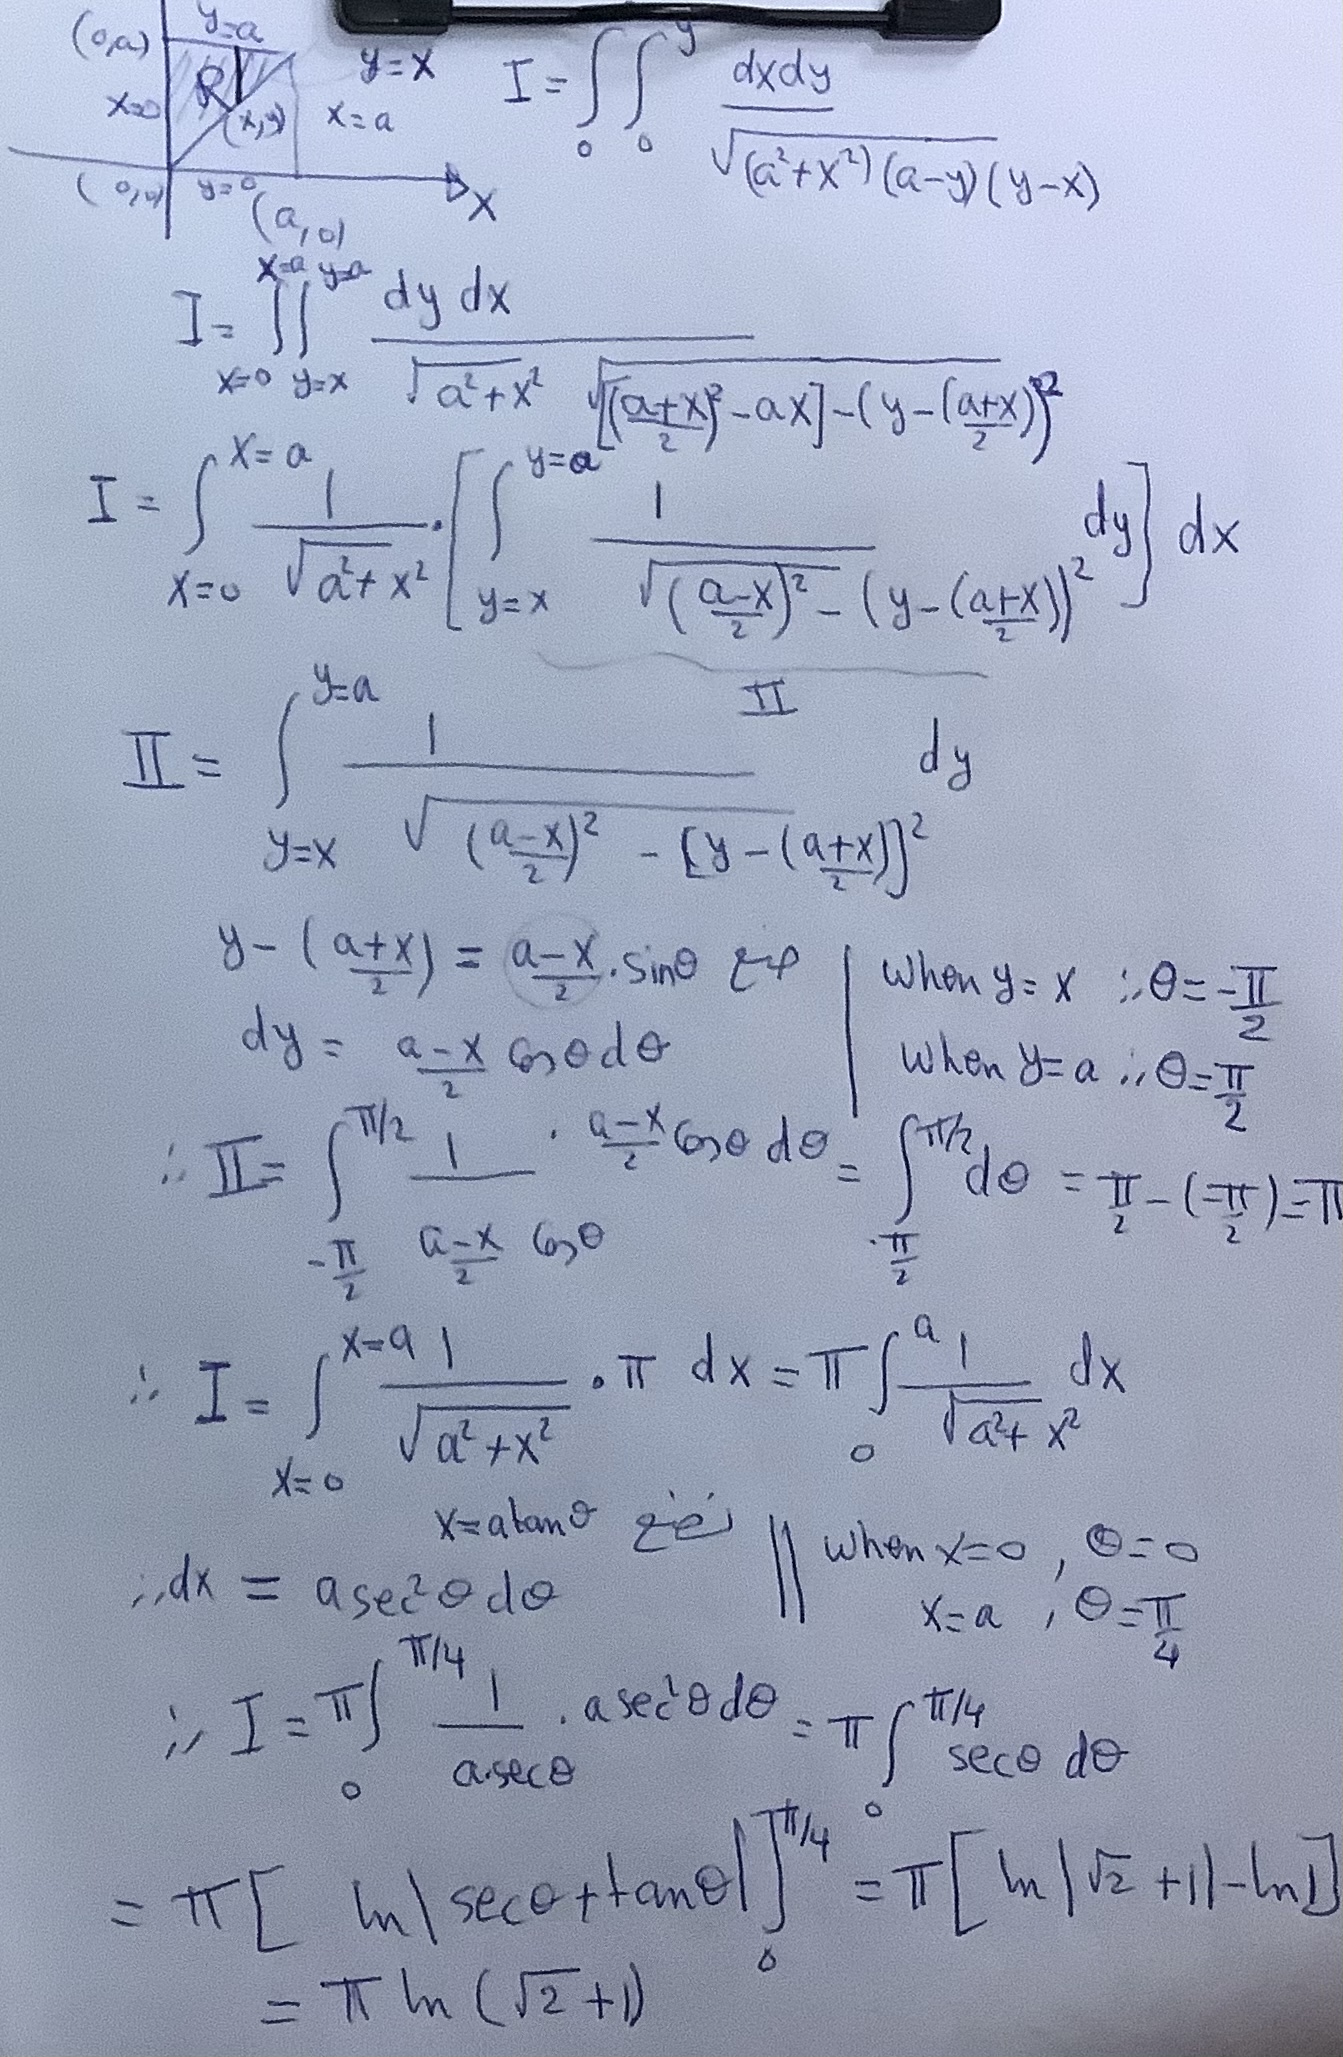 (0,a) y=a
x=0 R (x,y) y=x x=a
(0,0) y=0 (a,0) x
I = ∫₀ ∫₀^y dxdy / √(a²+x²)(a-y)(y-x)
I = ∫_{x=0}^{x=a} ∫_{y=x}^{y=a} dy dx / √a²+x² √[((a+x)/2)² - ax] - (y-((a+x)/2))²
I = ∫_{x=0}^{x=a} 1/√a²+x² · [∫_{y=x}^{y=a} 1/√((a-x)/2)² - (y-((a+x)/2))² dy] dx
II
II = ∫_{y=x}^{y=a} 1/√((a-x)/2)² - [y-((a+x)/2)]² dy
y-((a+x)/2) = (a-x)/2 · sinθ | when y=x ∴ θ=-π/2
dy = (a-x)/2 cosθ dθ | when y=a ∴ θ=π/2
∴ II = ∫_{-π/2}^{π/2} 1/((a-x)/2 cosθ) · (a-x)/2 cosθ dθ = ∫_{-π/2}^{π/2} dθ = π/2-(-π/2)=π
∴ I = ∫_{x=0}^{x=a} 1/√a²+x² · π dx = π ∫₀^a 1/√a²+x² dx
x=a tanθ || when x=0, θ=0
∴ dx = a sec²θ dθ || x=a, θ=π/4
∴ I = π ∫₀^{π/4} 1/(a·secθ) · a sec²θ dθ = π ∫₀^{π/4} secθ dθ
= π [ ln|secθ+tanθ| ]₀^{π/4} = π[ ln|√2+1|-ln1]
= π ln(√2+1)